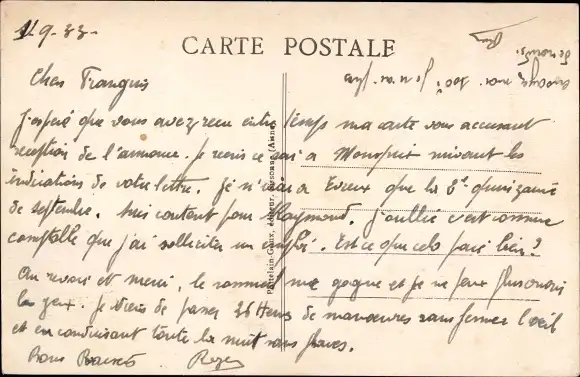 11 9 - 33 -
CARTE POSTALE
Cher Franquis
J'espère que vous avez recu entre temps ma carte vous accusant
reception de l'annonce. Je ce a suivant les
indications de votre lettre. Je n'irai a Evreux que la 2e quinzaine
de septembre. Suis content pour Raymond. J'oublié c'est comme
comptable que j'ai solliciter un emploi. Est ce que cela fait bien?
Au revoir et merci, le sommeil me gagne et je ne peux plus ouvrir
les yeux. Je viens de passer 36 Heures de manoeuvres sans fermer l'oeil
et en conduisant toute la nuit sans phares.
Bons Baisers Roger